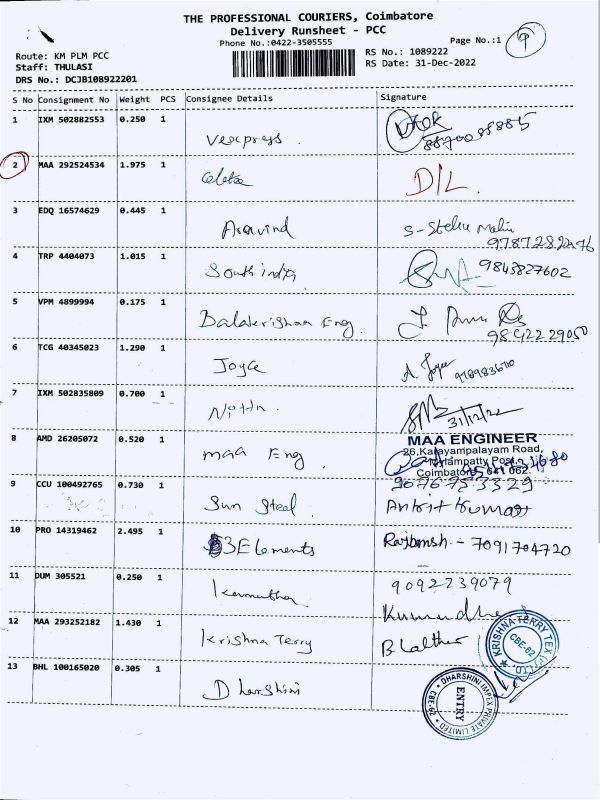 THE PROFESSIONAL COURIERS, Coimbatore
Delivery Runsheet - PCC
Phone No.:0422-3505555
Page No.:1
Route: KM PLM PCC
Staff: THULASI
DRS No.: DCJB108922201
RS No.: 1089222
RS Date: 31-Dec-2022
S No Consignment No Weight PCS Consignee Details Signature
1 IXM 502882553 0.250 1 Vexpress
2 MAA 292524534 1.975 1 D/L.
3 EDQ 16574629 0.445 1 Aravind
4 TRP 4404073 1.015 1 South india 9843827602
5 VPM 4899994 0.175 1 Balakrishnan Eng. 98422 29050
6 TCG 40345023 1.290 1 Joyce A. Joyce
7 IXM 502835809 0.700 1 31/12/22
8 AMD 26205072 0.520 1 maa Eng.
MAA ENGINEER
26,Karayampalayam Road,
Coimbatore - 641 062.
9 CCU 100492765 0.730 1 Sun Steel. 9076753329
Ankit Kumar
10 PRO 14319462 2.495 1 3Elements 7091704720
11 DUM 305521 0.250 1 9092739079
12 MAA 293252182 1.430 1 Krishna Terry
KRISHNA TERRY TEX
CBE-62
13 BHL 100165020 0.305 1 Dharshini
DHARSHINI IMPEX PRIVATE LIMITED
CBE-62
ENTRY